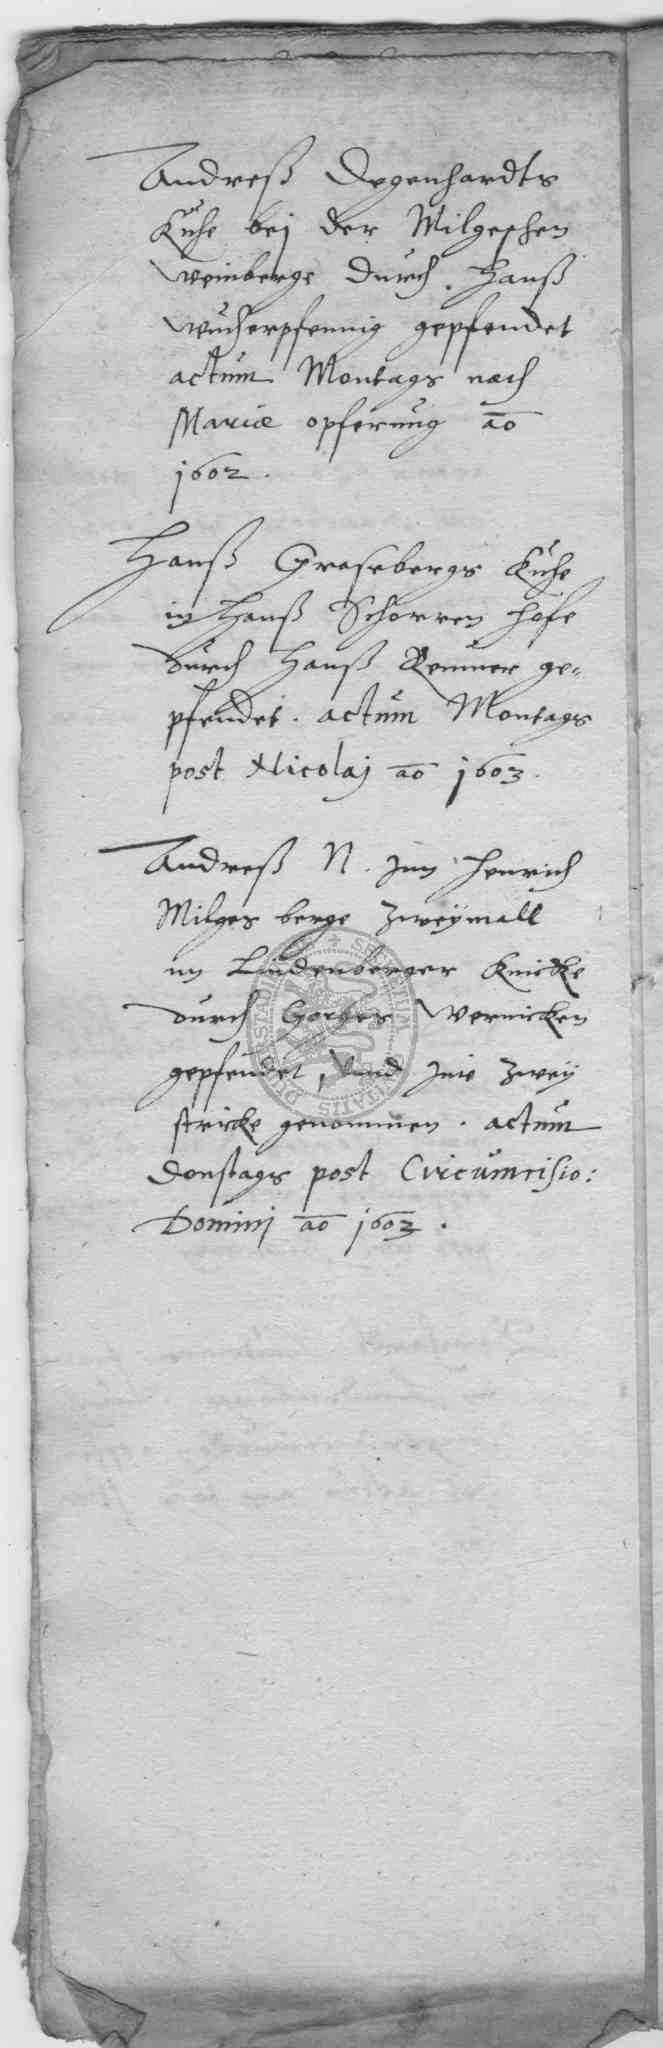 Andreß Degenhardts
Kuhe bej der Milgeshen
weinberge durch. Hanß
wucherpfennig gepfendet
actum Montags nach
Mariæ opferung ao
1602.
Hanß Grasebergs Kuhe
in Hanß Schorren hofe
durch Hanß Remmer ge-
pfendet. actum Montags
post Nicolaj ao 1603.
Andreß N. Jnn Henrich
Milges berge zweymall
im Lindenberger Knicke
durch Gorges Wernicken
gepfendet, Vnd Jme zwey
stricke genommen. actum
donstags post Circumcisio:
Dominj ao 1603.